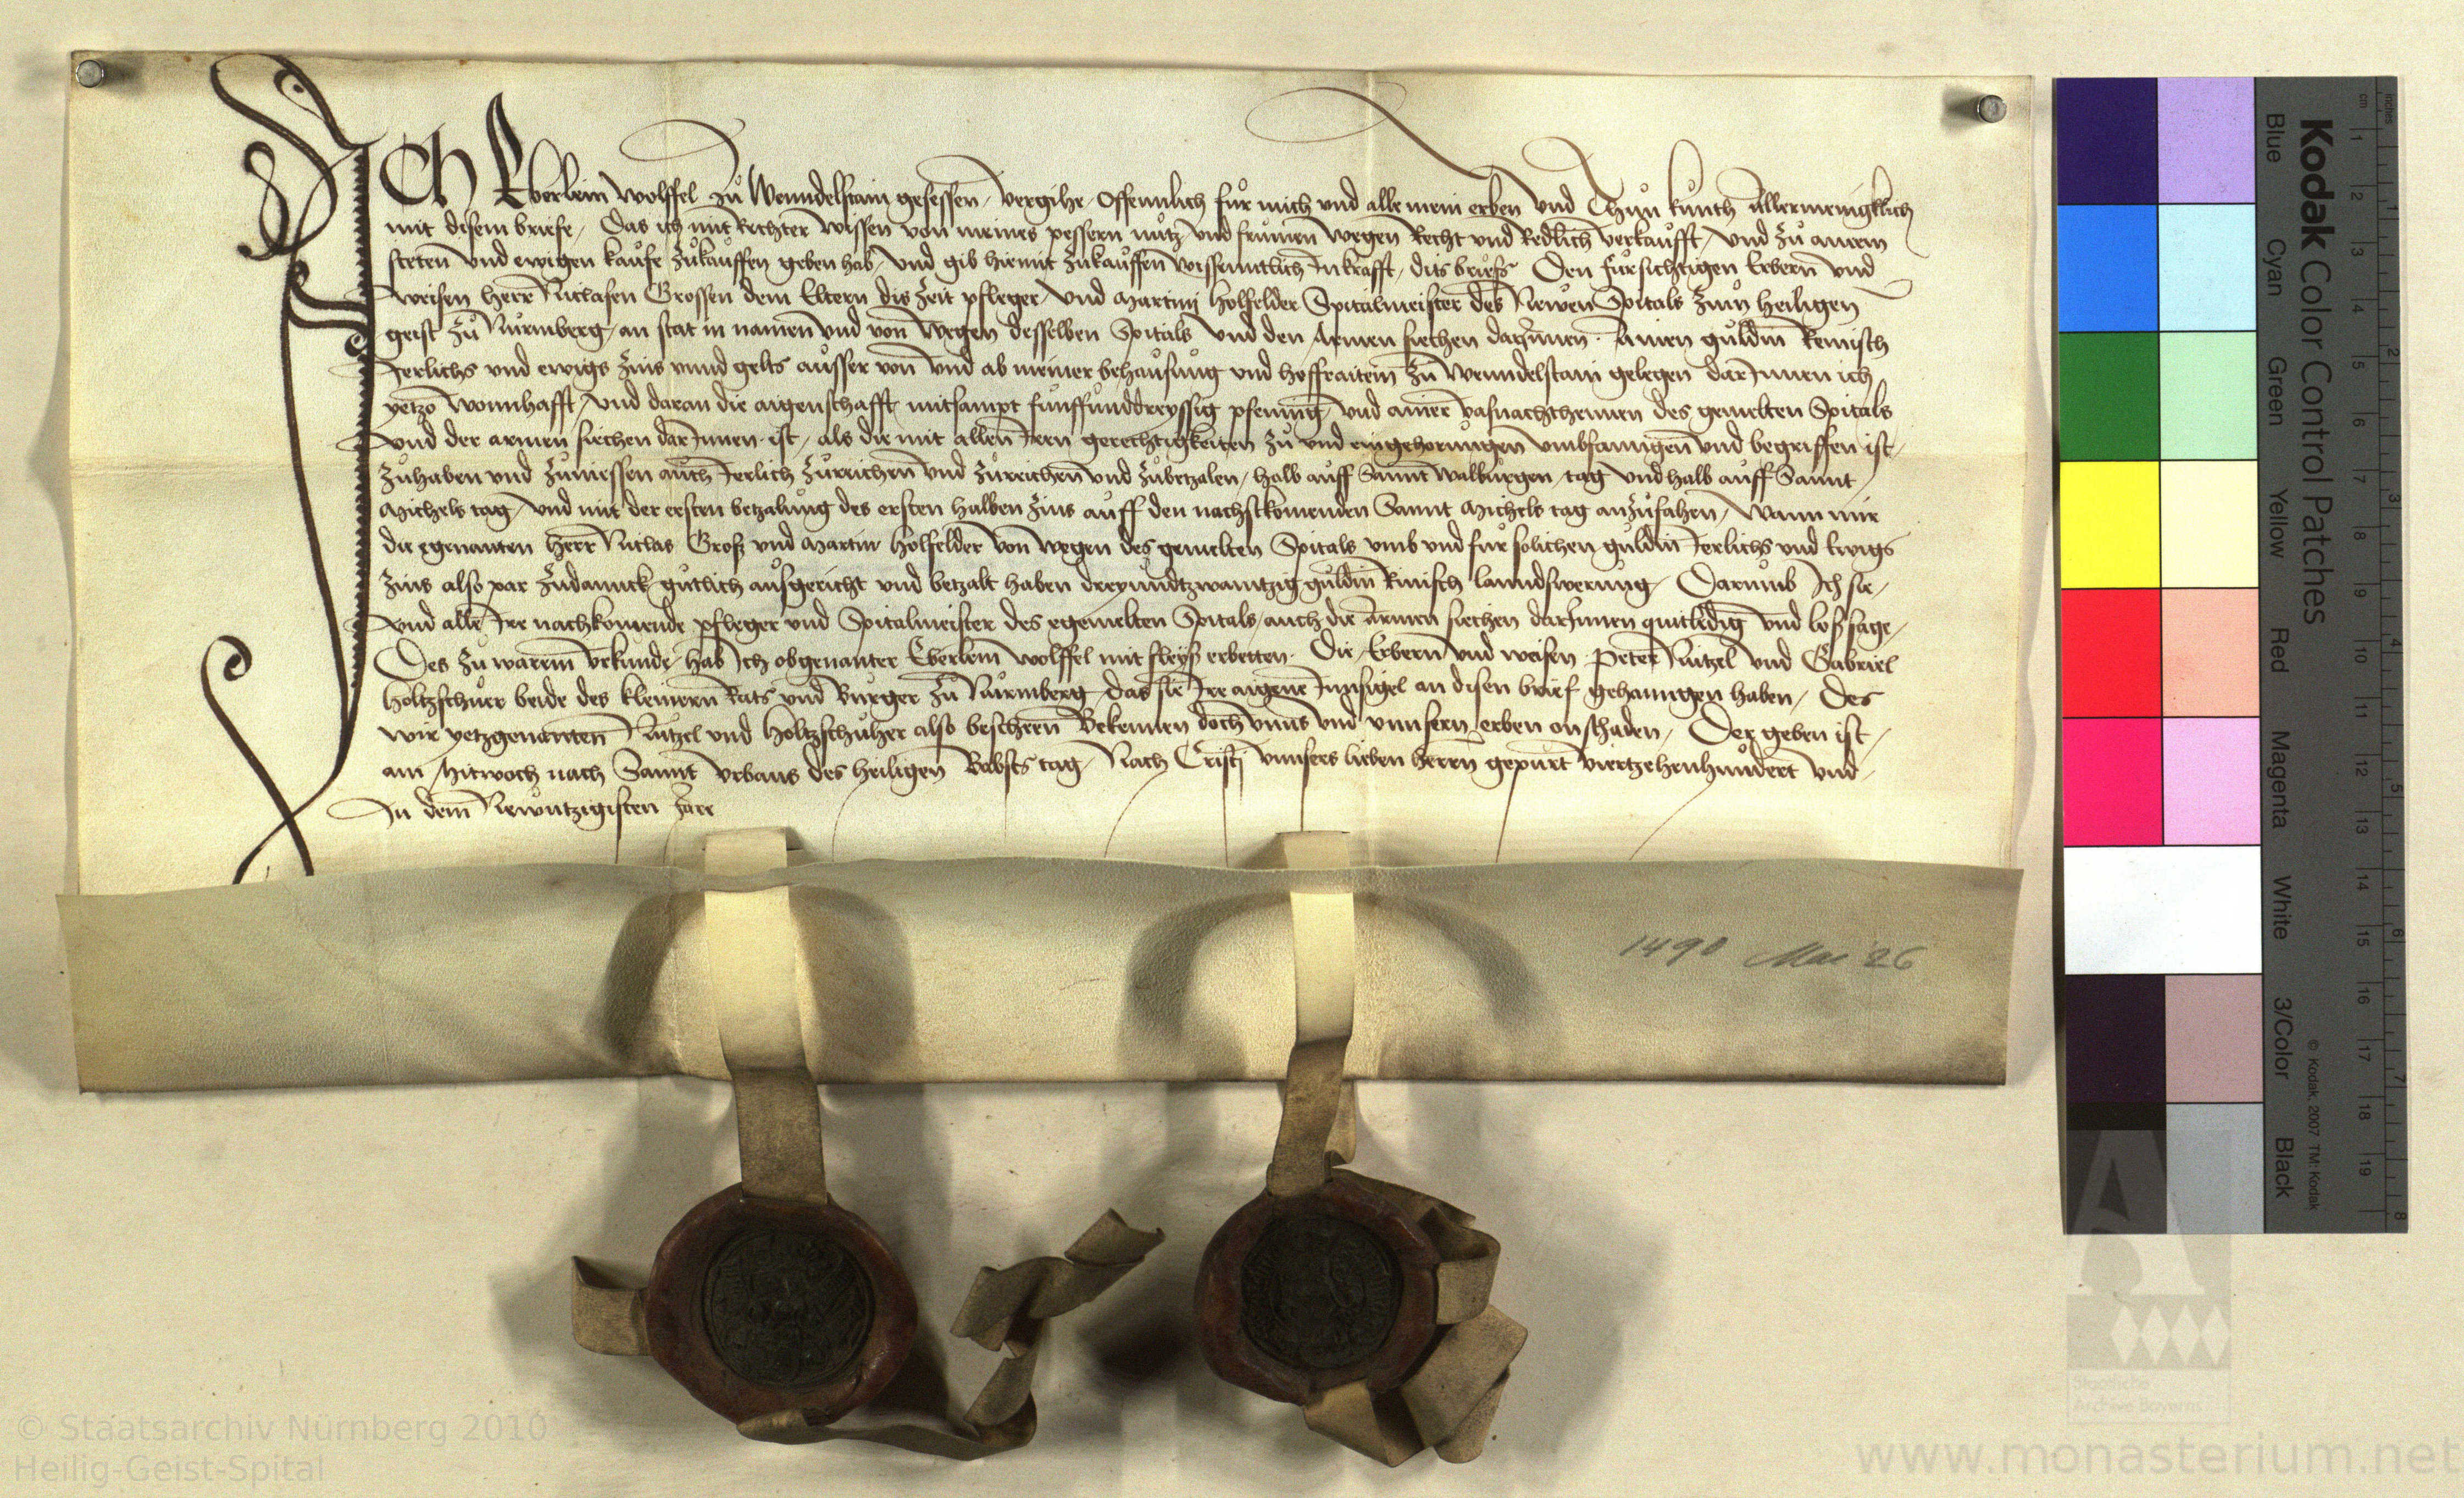 ICH Eberlein Wolffel zů Wenndelstain gesessen / vergihe Offennlich für mich und alle mein erben und Thůn kunth Allermenigklich
mit disem briefe / Das ich mit Rechter wissen von meines pessern nůtz und frůmen wegen Recht und Redlich verkaufft / und zů ainem
steten und ewigen kaufe zůkauffen geben hab / und gib hiemit zůkauffen wissenntlich In krafft / dits briefs Den fürsichtigen Erbern und
weisen herrn Niclasen Grossen dem Eltern dis zeit pfleger / und Martin Holfelder Spitalmeister des Newen Spitals zum heiligen
geist zů Nůrmberg / an stat in namen und von wegen desselben Spitals und den Armen siechen darInnen · Ainen guldin Reinisch
Ierlichs und ewigs zins unnd gelts ausser von und ab meiner behausung und hoffraitein zů Wenndelstain gelegen darInnen ich
yetzo wonnhafft / und daran die aigenschafft mitsampt funffunddreyssig pfening / und ainer vasnachthennen des gemelten Spitals
und der armen siechen darInnen · ist / als die mit allen Iren gerechtigkeiten zů und eingehorungen umbfanngen und begriffen ist /
zůhaben und zůniessen auch Ierlich zůreichen und zůreichen und zůbetzalen / halb auff Sannt Walburgen tag und halb auff Sannt
Michels tag / und mit der ersten betzalung des ersten halben zins auff den nachstkomenden Sannt Michels tag anzůfahen / Wann mir
die egenanten herr Niclas Groß und Martin Holfelder von wegen des gemelten Spitals umb und für solichen guldin Ierlichs und Ewigs
zins also par zůdannck gůtlich ausgericht und betzalt haben dreyundtzwanntzig guldin Rinisch lanndswerung / Darumb Ich sie /
und alle Ire nachkomende pfleger und Spitalmeister des egemelten Spitals / auch die armen siechen darInnen quitledig und loß sage /
Des zů warem urkunde / hab Ich obgenanter Eberlein Wolffel mit fleyß erbetten · Die Erbern und weisen Peter Nůtzel und Gabriel
Holtzschuer beide des kleinern Rats und Burger zů Nůrmberg / das sie Ire aigene Innsigel an disen brief gehanngen haben / Des
wir yetzgenanten Nůtzel und Holtzschuher also bescheen Bekennen doch unns und unnsern erben on schaden / Der geben ist /
am Mitwoch nach Sannt Urbans des heiligen Babsts tag / Nach Cristi unnsers lieben herrn gepurt Viertzehenhundert und /
In dem Newntzigisten Jare
1490 Mai 26
Kodak Color Control Patches
Blue Cyan Green Yellow Red Magenta White 3/Color Black
© Kodak, 2007 TM: Kodak
cm 1 2 3 4 5 6 7 8 9 10 11 12 13 14 15 16 17 18 19
inches 1 2 3 4 5 6 7 8
Staatliche
Archive Bayerns
© Staatsarchiv Nürnberg 2010
Heilig-Geist-Spital
www.monasterium.net